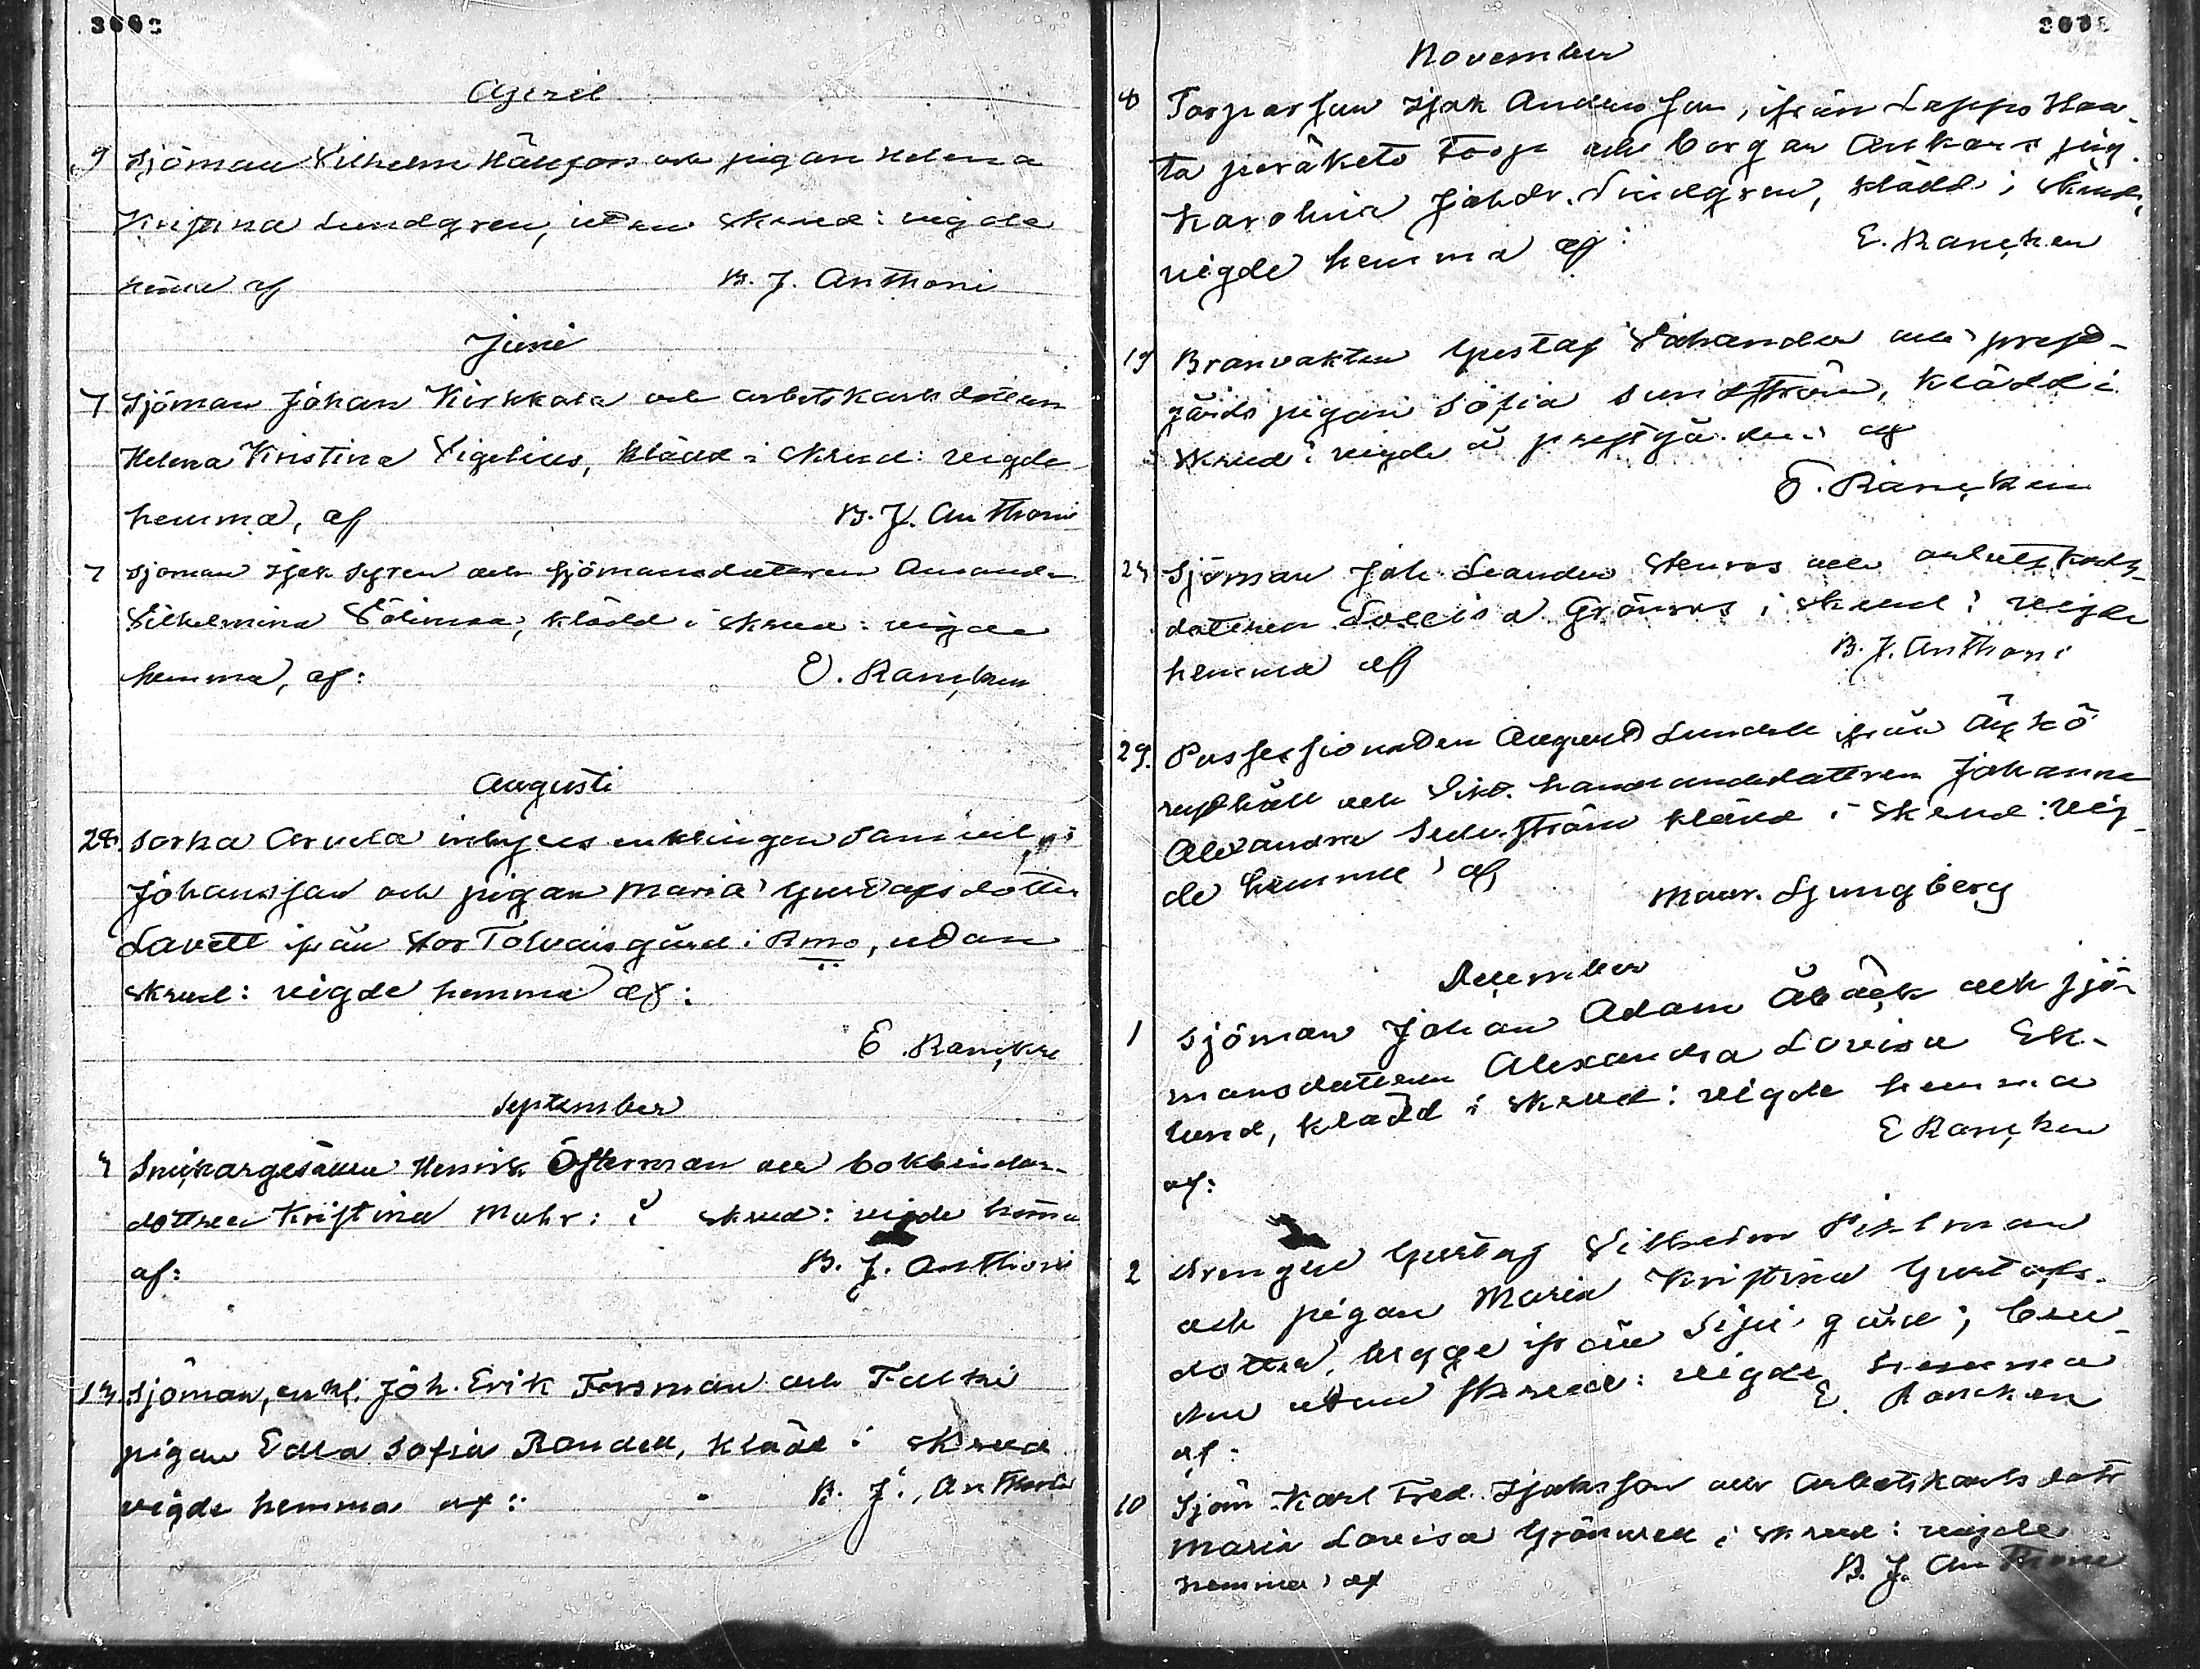 April
9 Sjöman Vilhelm Hällfors och pigan Helena
Kristina Lundgren, utan skrud: vigde
hemma af B. J. Anthoni
Juni
7 Sjöman Johan Kirkkala och arbetskarlsdottern
Helena Kristina Vigelius, klädd i skrud: vigde
hemma, af B. J. Anthoni
7 Sjöman Isak och sjömansdottren Amanda
Vilhelmina klädd i skrud: vigde
hemma, af: E. Rancken
Augusti
28. Sorka Arvela inhyses enklingen Samuel
Johansson och pigan Maria Gustafsdotter
Lavett ifrån Stor Tolvais gård i Rmo, utan
skrud: vigde hemma af:
E. Rancken
September
4 Snickargesällen Henrik Österman och bokbindar-
dottren Kristina Mohr: i skrud: vigde hemma
af: B. J. Anthoni
13 Sjöman, enkl. Joh. Erik Forsman och
pigan Edla Sofia Randell, klädd i skrud
vigde hemma af: B. J. Anthoni
November
8 Torparson Isak Andersson, ifrån Lappo Haa-
ta peräketo Torp och borgar Ankars pig.
Karolina Johdr. Lindgren, klädd i skrud,
vigde hemma af: E. Rancken
19 Branvakten Gustaf och prest-
gårds pigan Sofia Sundström, klädd i
skrud: vigde å prestgården af
E. Rancken
24 Sjöman Joh. Leander Stenros och arbetskarls-
dottren Lovisa Grönros i skrud: vigde
hemma af B. J. Anthoni
29. Possessionaten August Lundell ifrån
rusthåll och Vikt. handlandedottren Johanna
Alexandra Sederström klädd i skrud: vig-
de hemma af
Maur. Ljungberg
December
1 Sjöman Johan Adam Åbäck och sjö-
mansdottren Alexandra Lovisa Ek-
lund, klädd i skrud: vigde hemma
af: E Rancken
2 Drengen Gustaf Vilhelm Pihlman
och pigan Maria Kristina Gustafs-
dotter, begge ifrån gård; bru-
den utan skrud: vigde hemma
af: E. Rancken
10 Sjöm. Karl Fred. Isaksson och Arbetskarls dottr
Maria Lovisa Grönroos i skrud: vigde
hemma af B. J. Anthoni